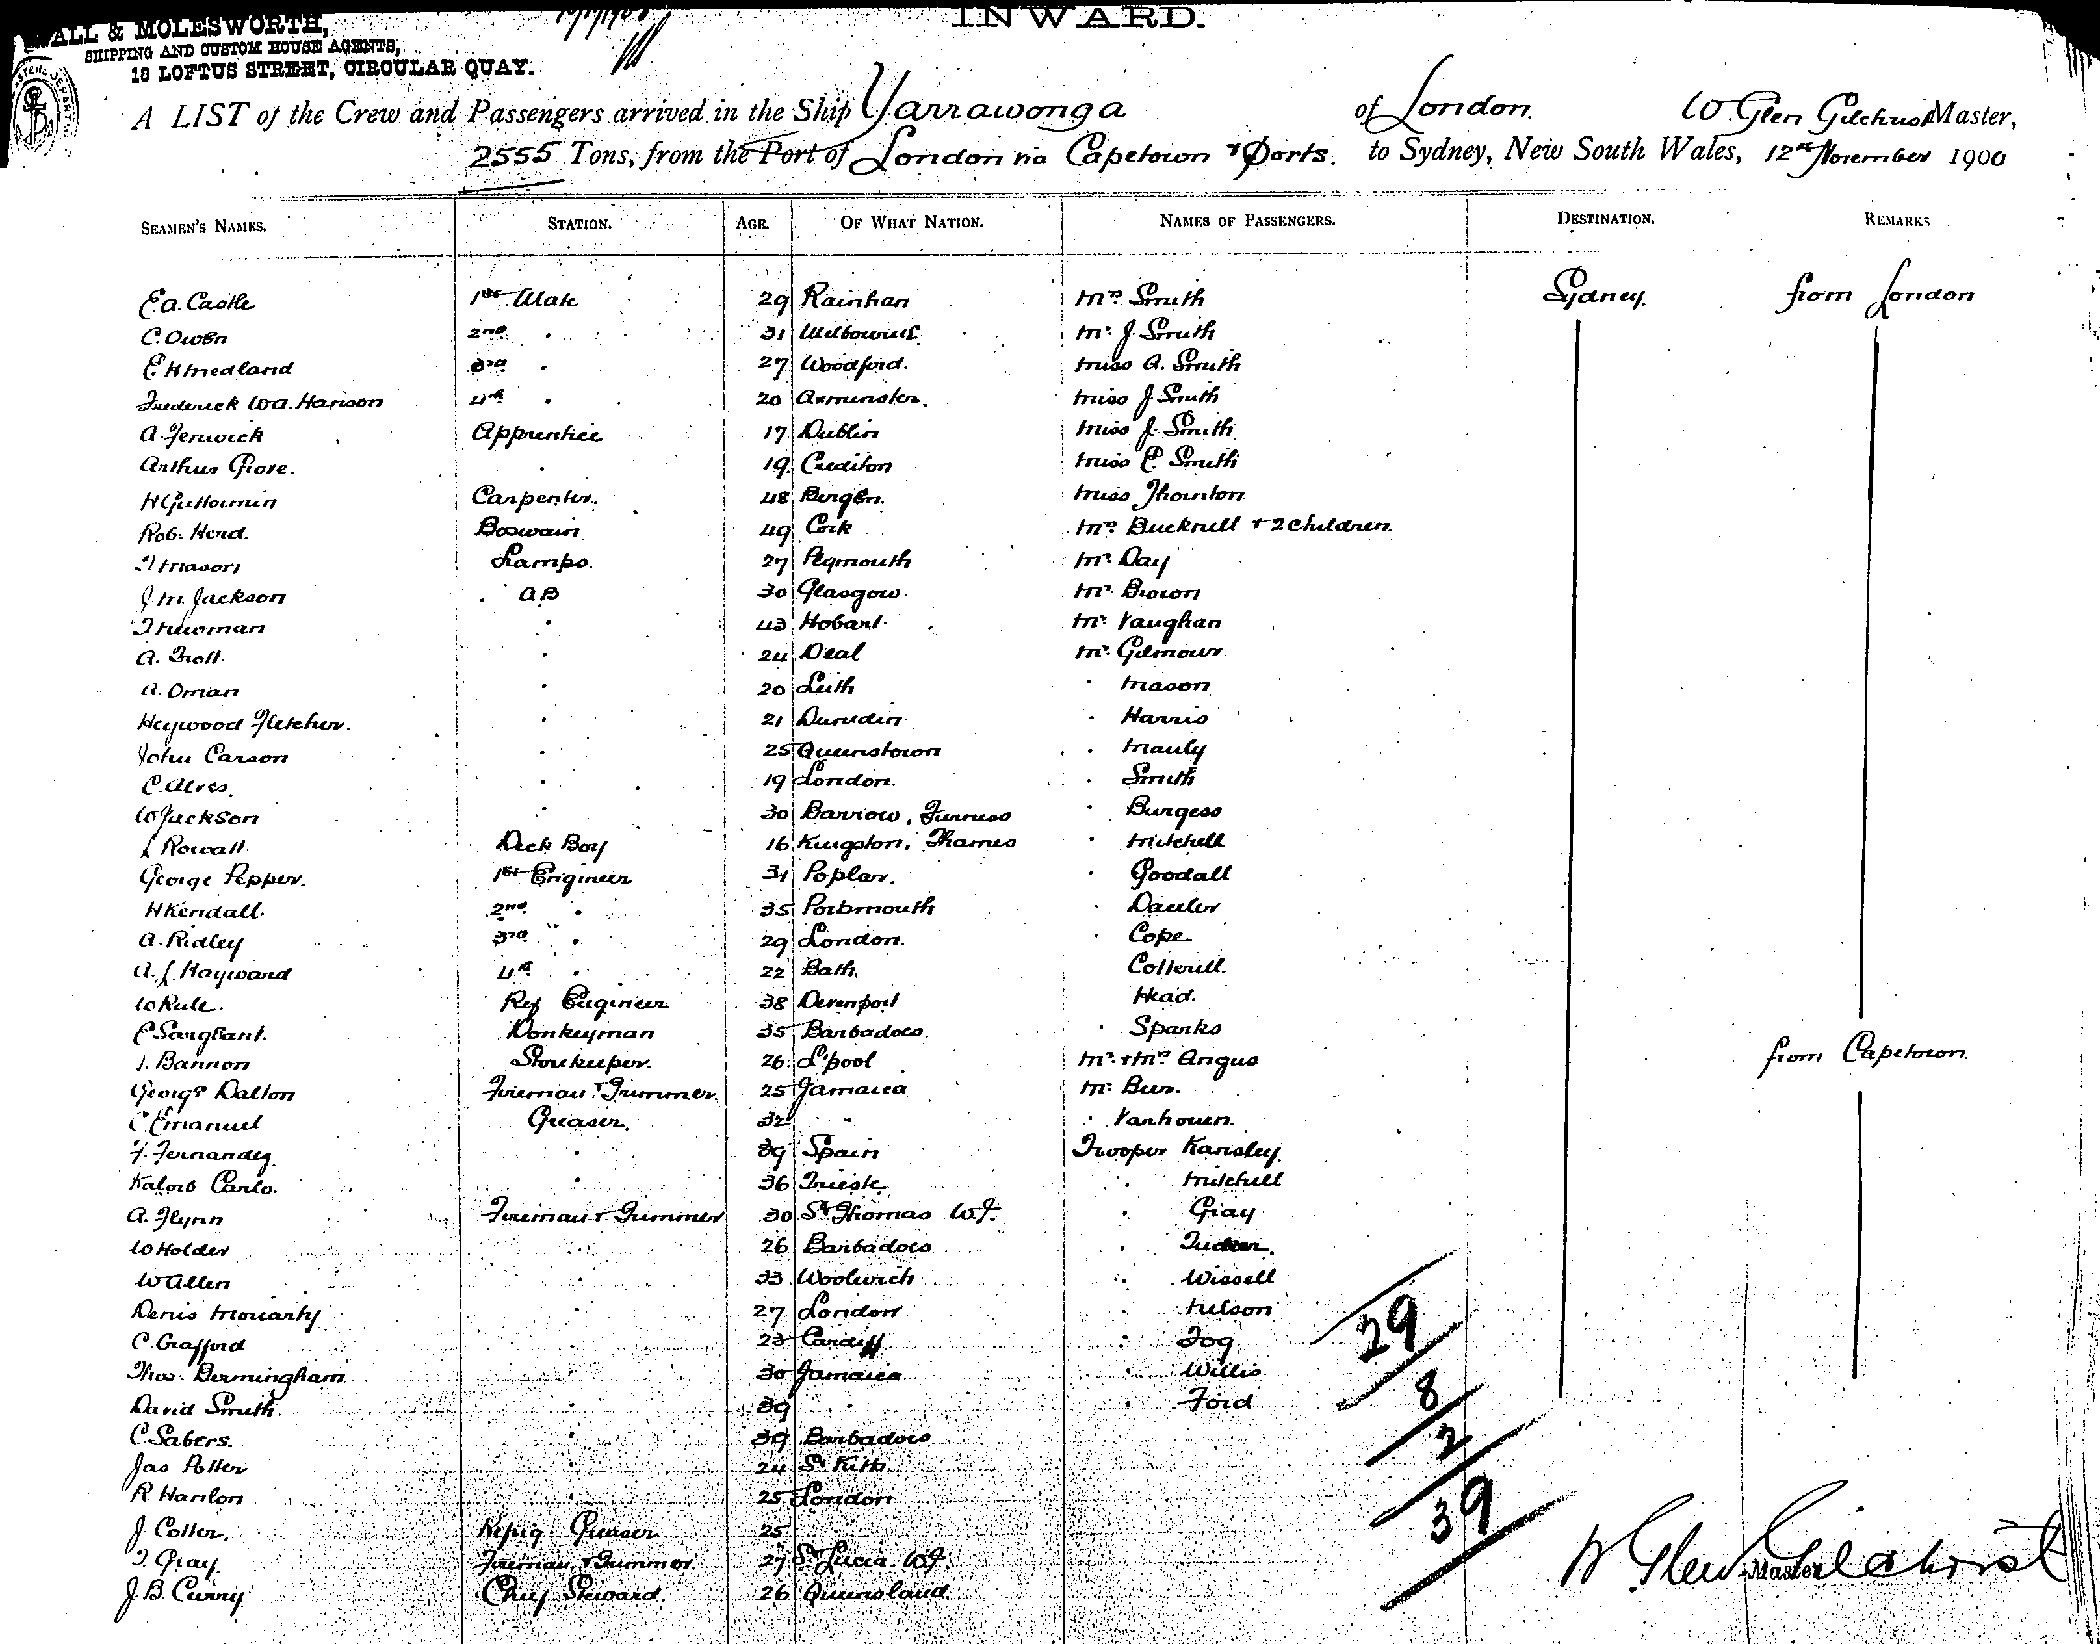 INWARD.
ALL & MOLESWORTH,
SHIPPING AND CUSTOM HOUSE AGENTS,
18 LOFTUS STREET, CIRCULAR QUAY.
A LIST of the Crew and Passengers arrived in the Ship Yarrawonga of London. W Glen Gilchrist Master,
2555 Tons, from the Port of London via Capetown & Ports. to Sydney, New South Wales, 12th November 1900
SEAMEN'S NAMES. STATION. AGE. OF WHAT NATION. NAMES OF PASSENGERS. DESTINATION. REMARKS
E.A. Castle 1st Mate 29 Rainham Mrs Smith Sydney. from London
C. Owen 2nd " 31 Melbourne Mr J. Smith
E H Medland 3rd " 27 Woodford. Miss A. Smith
Frederick W.A. Harison 4th " 20 Axminster. Miss J Smith
A. Fenwick Apprentice 17 Dublin Miss J. Smith
Arthur Grose. " 19 Crediton Miss E. Smith
H Guttormsen Carpenter. 48 Bergen. Miss Thornton
Rob. Herd. Boswain 49 Cork Mrs Bucknell + 2 Children.
T Mason Lamps. 27 Plymouth Mr Day
J. M. Jackson AB 30 Glasgow. Mr Brown
T Newman " 43 Hobart. Mr Vaughan
A. Trott. " 24 Deal Mr Gilmour
A. Oman " 20 Leith " Mason
Heywood Fletcher. " 21 Dunedin " Harris
John Carson " 25 Queenstown " Manly
C. Alves. " 19 London. " Smith
W Jackson " 30 Barrow, Furness " Burgess
L Rowatt. Deck Boy 16 Kingston, Thames " Mitchell
George Pepper. 1st Engineer 31 Poplar. " Goodall
H Kendall. 2nd " 35 Portsmouth " Dauler
A. Ridley 3rd " 29 London. " Cope
A. J Hayward 4th " 22 Bath. Cotterill.
W Rule. Ref Engineer 38 Devenport Head.
C Sargeant. Donkeyman 35 Barbadoes " Sparks
J. Bannon Storekeeper. 26 L'pool Mr & Mrs Angus from Capetown.
George Dalton Fireman & Trimmer 25 Jamaica Mr Bur.
C Emanuel Greaser. 32 " " Vanhouen.
F. Fernandez " 39 Spain Trooper Kansley.
Kalois Carlo. " 36 Trieste " Mitchell
A. Flynn Fireman & Trimmer 30 St Thomas W.I. " Gray
W Holder " 26 Barbadoes " Tucker.
W Allen " 33 Woolwich " Wissell
Denis Moriarty " 27 London " Nelson
C. Crafford " 23 Cardiff " Fog
Thos. Bermingham " 30 Jamaica " Willis
David Smith. " 39 " " Ford
C. Sabers. " 39 Barbadoes
Jas Potter " 24 St Kitts
R Hanlon " 25 London
J. Cotter. Refrig Greaser 25
T. Gray Fireman & Trimmer 27 St Lucia W.I.
J. B. Curry Chief Steward. 26 Queensland
29
8
2
39
W Glen Gilchrist
Master